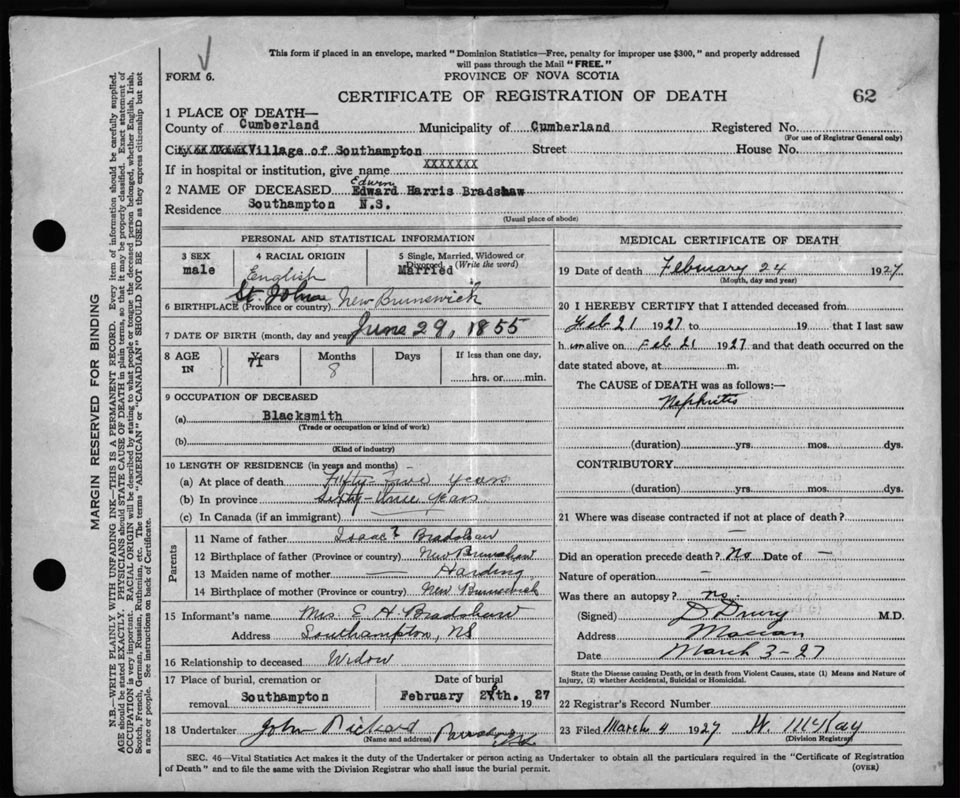 This form if placed in an envelope, marked "Dominion Statistics—Free, penalty for improper use $300," and properly addressed
will pass through the Mail "FREE."
FORM 6.
PROVINCE OF NOVA SCOTIA
CERTIFICATE OF REGISTRATION OF DEATH
62
1 PLACE OF DEATH—
County of Cumberland Municipality of Cumberland Registered No.
(For use of Registrar General only)
Village of Southampton Street House No.
If in hospital or institution, give name XXXXXXX
Edwin
2 NAME OF DECEASED Edward Harris Bradshaw
Residence Southampton N.S.
(Usual place of abode)
PERSONAL AND STATISTICAL INFORMATION
3 SEX 4 RACIAL ORIGIN 5 Single, Married, Widowed or Divorced (Write the word)
male English Married
6 BIRTHPLACE (Province or country) St. John New Brunswick
7 DATE OF BIRTH (month, day and year) June 29, 1855
8 AGE IN Years Months Days If less than one day,
71 8 hrs. or min.
9 OCCUPATION OF DECEASED
(a) Blacksmith
(Trade or occupation or kind of work)
(b)
(Kind of industry)
10 LENGTH OF RESIDENCE (in years and months) –
(a) At place of death Fifty-five years
(b) In province Sixty-three years
(c) In Canada (if an immigrant)
Parents
11 Name of father Isaac Bradshaw
12 Birthplace of father (Province or country)
13 Maiden name of mother — Harding
14 Birthplace of mother (Province or country) New Brunswick
15 Informant's name Mrs. E. H. Bradshaw
Address Southampton, NS
16 Relationship to deceased Widow
17 Place of burial, cremation or removal Southampton
Date of burial February th. 1927
18 Undertaker John Rickard
(Name and address)
MEDICAL CERTIFICATE OF DEATH
19 Date of death February 24 1927
(Month, day and year)
20 I HEREBY CERTIFY that I attended deceased from
Feb 21 1927 to 19 that I last saw
h im alive on Feb 21 1927 and that death occurred on the
date stated above, at m.
The CAUSE of DEATH was as follows:—
Nephritis
(duration) yrs. mos. dys.
CONTRIBUTORY
(duration) yrs. mos. dys.
21 Where was disease contracted if not at place of death?
—
Did an operation precede death? No Date of —
Nature of operation —
Was there an autopsy? no
(Signed) D Drury M.D.
Address Maccan
Date March 3-27
State the Disease causing Death, or in death from Violent Causes, state (1) Means and Nature of
Injury, (2) whether Accidental, Suicidal or Homicidal.
22 Registrar's Record Number
23 Filed March 4 1927 W. McKay
(Division Registrar)
SEC. 46—Vital Statistics Act makes it the duty of the Undertaker or person acting as Undertaker to obtain all the particulars required in the "Certificate of Registration
of Death" and to file the same with the Division Registrar who shall issue the burial permit.
(OVER)
MARGIN RESERVED FOR BINDING
N.B.—WRITE PLAINLY WITH UNFADING INK—THIS IS A PERMANENT RECORD. Every item of information should be carefully supplied.
AGE should be stated EXACTLY. PHYSICIANS should STATE CAUSE OF DEATH in plain terms, so that it may be properly classified. Exact statement of
OCCUPATION is very important. RACIAL ORIGIN will be described by stating to what people or tongue the deceased person belonged, whether English, Irish,
Scotch, French, German, Russian, Ruthenian, etc. The terms "AMERICAN" or "CANADIAN" SHOULD NOT BE USED as they express citizenship but not
a race or people. See instructions on back of Certificate.